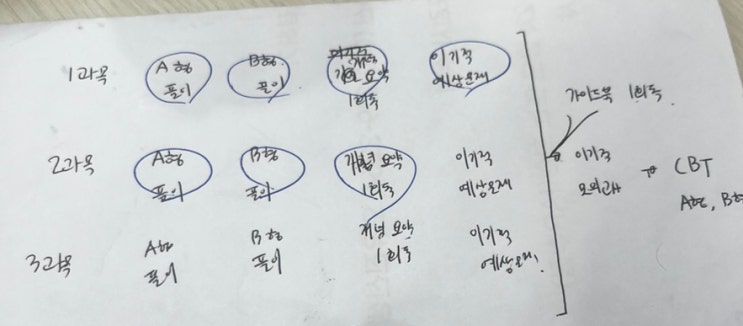 1과목
A형
풀이
B형
풀이
개념 요약
1회독
이기적
예상문제
2과목
A형
풀이
B형
풀이
개념 요약
1회독
이기적
예상문제
3과목
A형
풀이
B형
풀이
개념 요약
1회독
이기적
예상문제
가이드북 1회독
이기적
모의고사
→ CBT
A형, B형